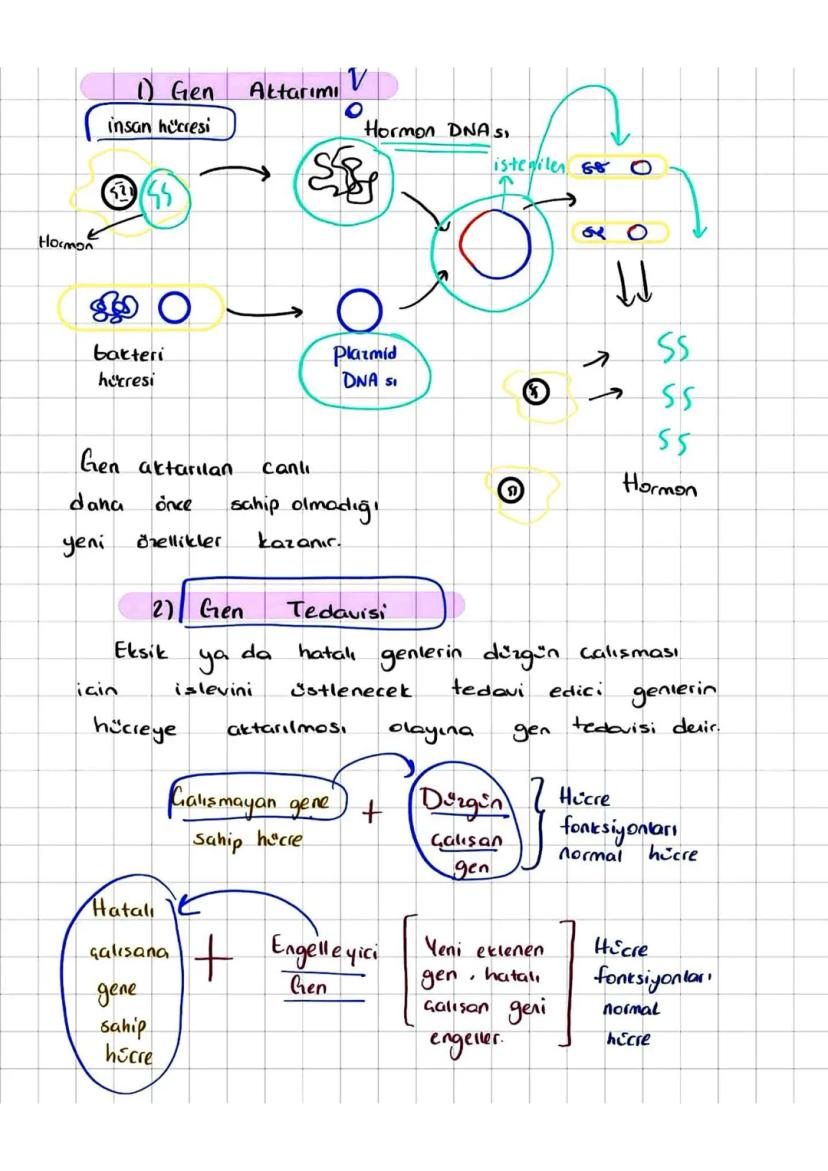 1) Gen Aktarımı
insan hücresi
Hormon DNA sı
istenilen
Hormon
bakteri
hücresi
Plazmid
DNA sı
Hormon
Gen aktarılan canlı
daha önce sahip olmadığı
yeni özellikler kazanır.
2) Gen Tedavisi
Eksik ya da hatalı genlerin düzgün calısması
icin islevini üstlenecek tedavi edici genlerin
hücreye aktarılması olayına gen tedavisi denir.
Çalısmayan gene
sahip hücre
+
Düzgün
çalısan
gen
Hücre
fonksiyonları
normal hücre
Hatalı
çalısana
gene
sahip
hücre
+
Engelleyici
Gen
Yeni eklenen
gen, hatalı
çalısan geni
engeller.
Hücre
fonksiyonları
normal
hücre